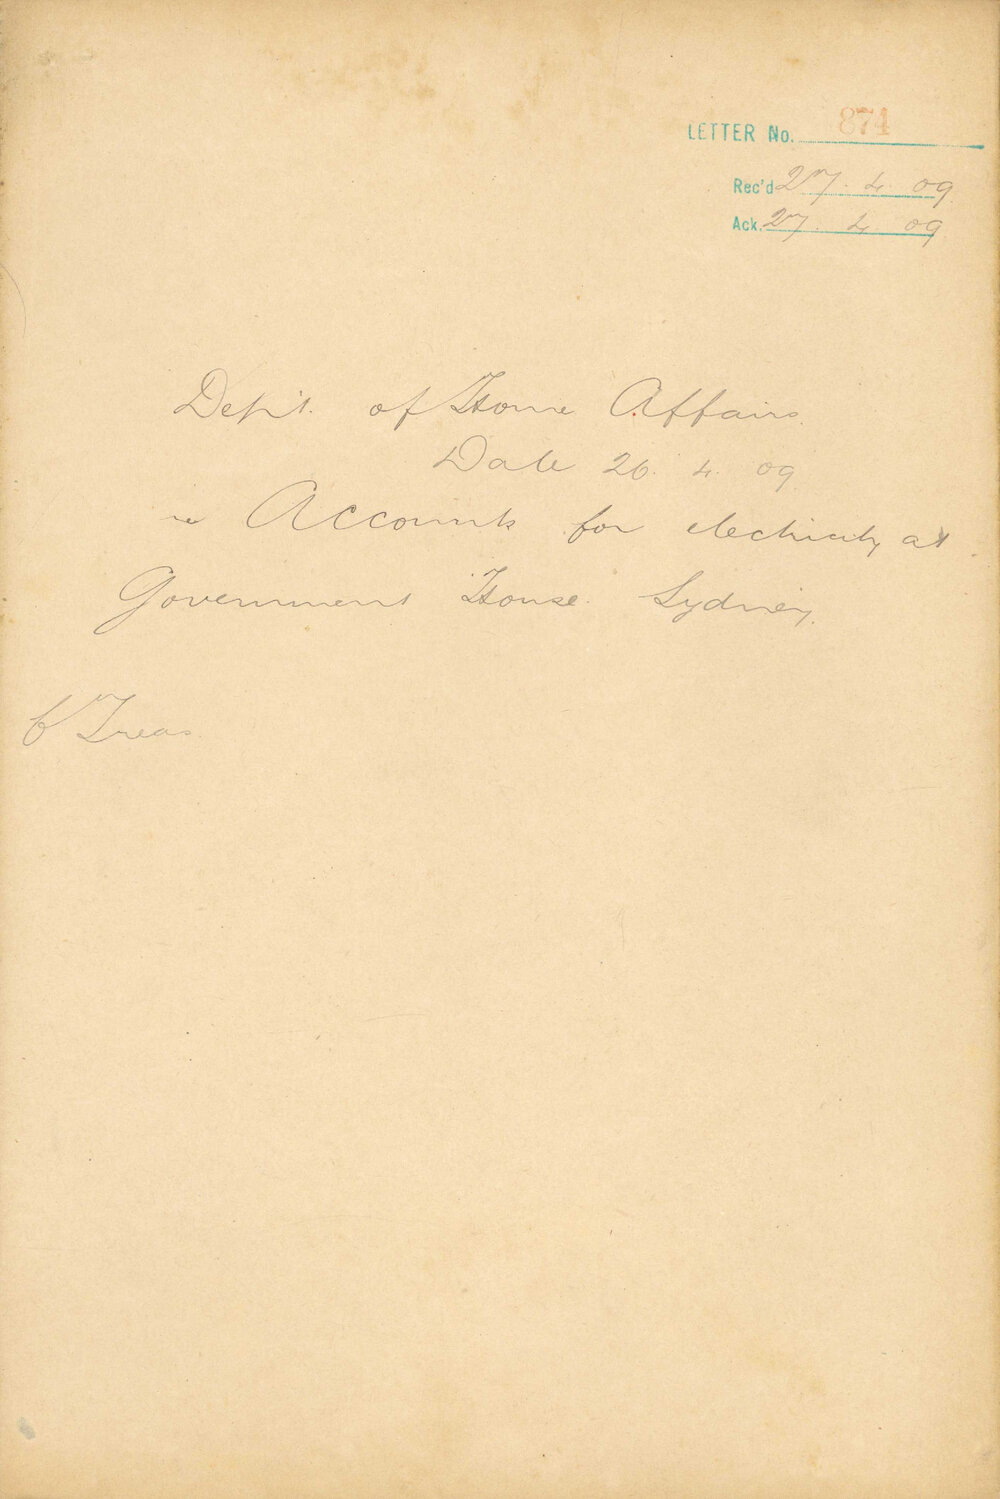 LETTER No. 874
Rec'd 27. 4. 09.
Ack. 27. 4. 09
Dep't. of Home Affairs.
Date 26. 4. 09
re Accounts for electricity at
Government House. Sydney.
C Treas.